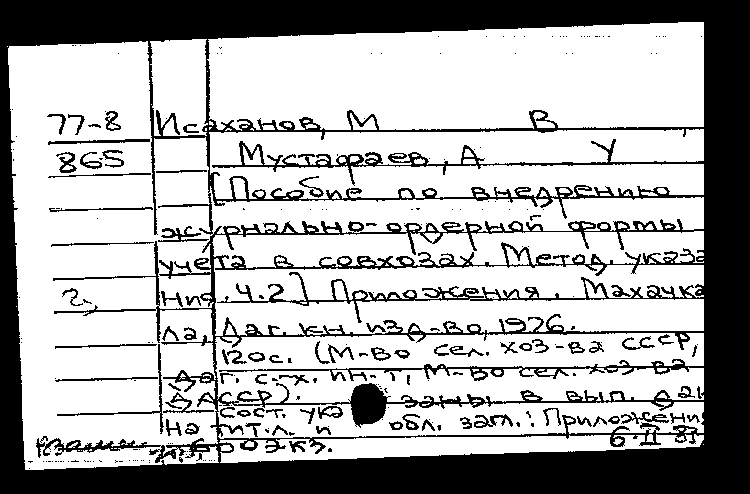 77-8 Исаханов, М В
865 Мустафаев, А У
[Пособие по внедрению
журнально-ордерной формы
учета в совхозах. Метод. указа
2, ния. Ч.2] Приложения. Махачка
ла, Даг. кн. изд-во, 1976.
120с. (М-во сел. хоз-ва СССР,
Даг. с.-х. ин-т, М-во сел. хоз-ва
ДАССР).
Сост. ука заны в вып. дан
На тит.л. и обл. загл.: Приложения
500экз. 6.II 81,